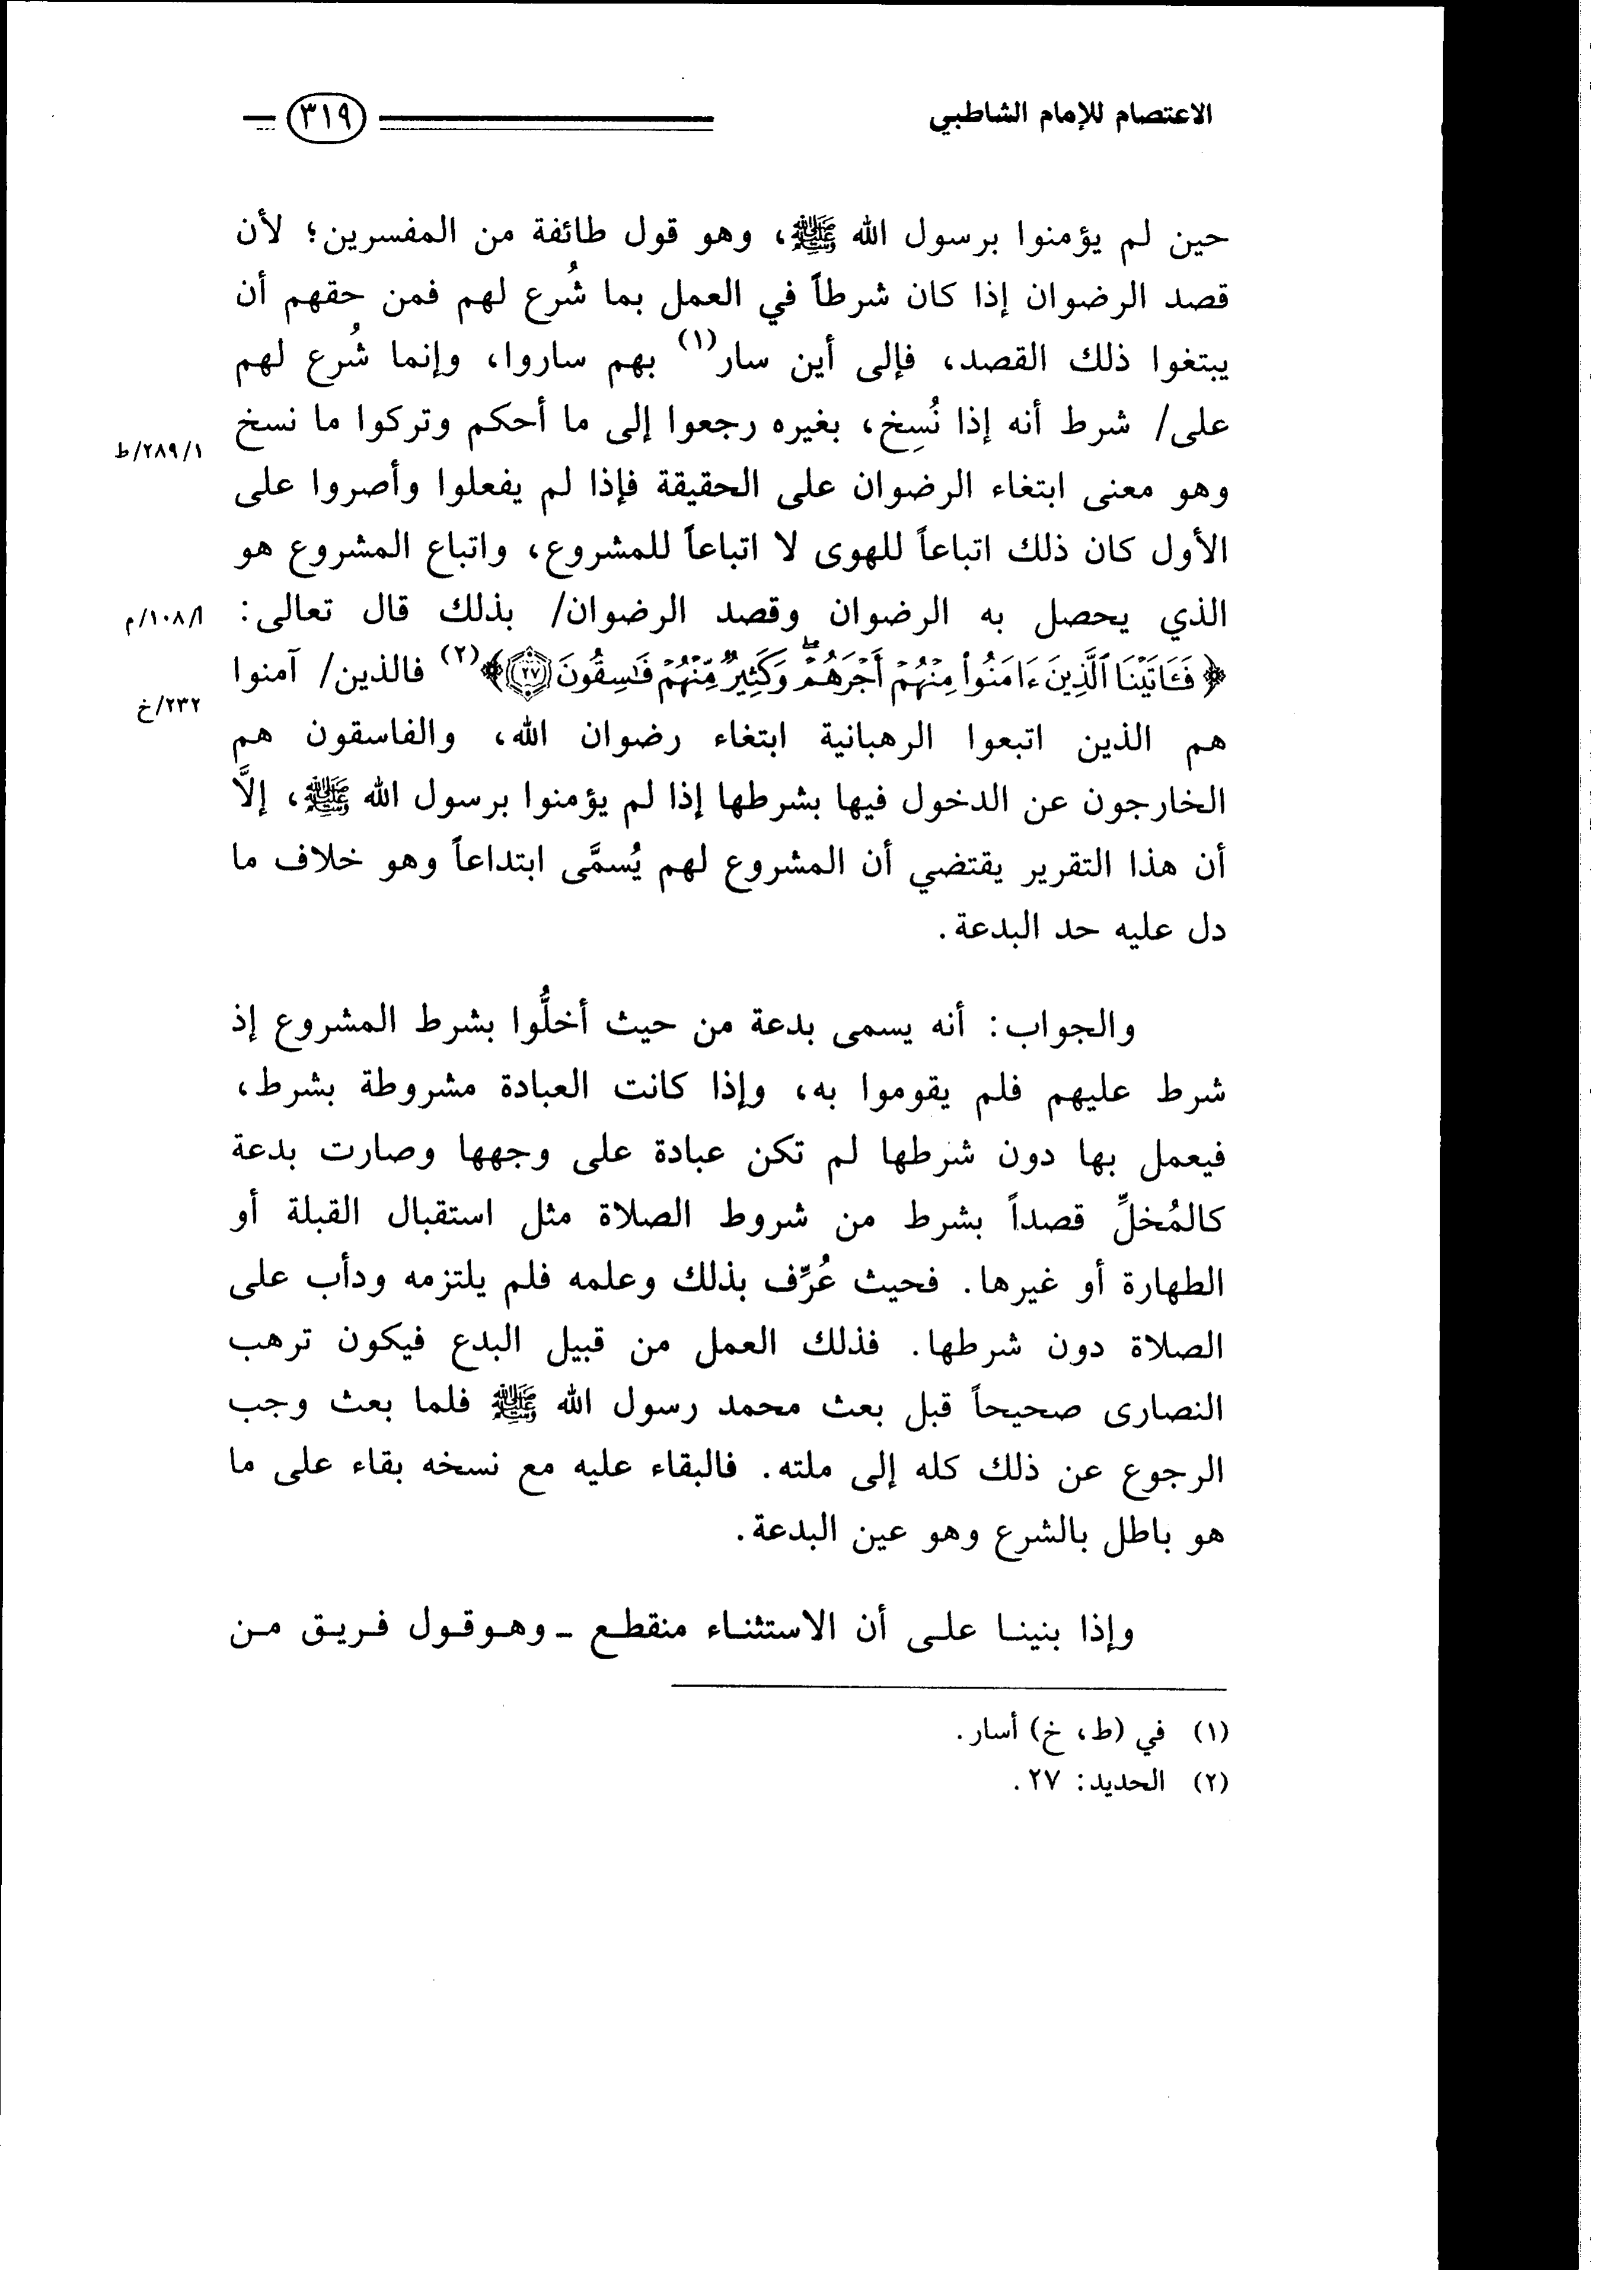 الاعتصام للإمام الشاطبي ٣١٩
حين لم يؤمنوا برسول الله ﷺ، وهو قول طائفة من المفسرين؛ لأن
قصد الرضوان إذا كان شرطاً في العمل بما شُرع لهم فمن حقهم أن
يبتغوا ذلك القصد، فإلى أين سار(١) بهم ساروا، وإنما شُرع لهم
على/ شرط أنه إذا نُسِخ، بغيره رجعوا إلى ما أحكم وتركوا ما نسخ
٢٨٩/١/ط
وهو معنى ابتغاء الرضوان على الحقيقة فإذا لم يفعلوا وأصروا على
الأول كان ذلك اتباعاً للهوى لا اتباعاً للمشروع، واتباع المشروع هو
الذي يحصل به الرضوان وقصد الرضوان/ بذلك قال تعالى:
١٠٨/أ/م
﴿فَـَٔاتَيْنَا ٱلَّذِينَ ءَامَنُوا۟ مِنْهُمْ أَجْرَهُمْ ۖ وَكَثِيرٌ مِّنْهُمْ فَـٰسِقُونَ ٢٧﴾(٢) فالذين/ آمنوا
٢٣٢/خ
هم الذين اتبعوا الرهبانية ابتغاء رضوان الله، والفاسقون هم
الخارجون عن الدخول فيها بشرطها إذا لم يؤمنوا برسول الله ﷺ، إلَّا
أن هذا التقرير يقتضي أن المشروع لهم يُسمَّى ابتداعاً وهو خلاف ما
دل عليه حد البدعة.
والجواب: أنه يسمى بدعة من حيث أخلُّوا بشرط المشروع إذ
شرط عليهم فلم يقوموا به، وإذا كانت العبادة مشروطة بشرط،
فيعمل بها دون شرطها لم تكن عبادة على وجهها وصارت بدعة
كالمُخلِّ قصداً بشرط من شروط الصلاة مثل استقبال القبلة أو
الطهارة أو غيرها. فحيث عُرِّف بذلك وعلمه فلم يلتزمه ودأب على
الصلاة دون شرطها. فذلك العمل من قبيل البدع فيكون ترهب
النصارى صحيحاً قبل بعث محمد رسول الله ﷺ فلما بعث وجب
الرجوع عن ذلك كله إلى ملته. فالبقاء عليه مع نسخه بقاء على ما
هو باطل بالشرع وهو عين البدعة.
وإذا بنينا على أن الاستثناء منقطع ـ وهو قول فريق من
(١) في (ط، خ) أسار.
(٢) الحديد: ٢٧.